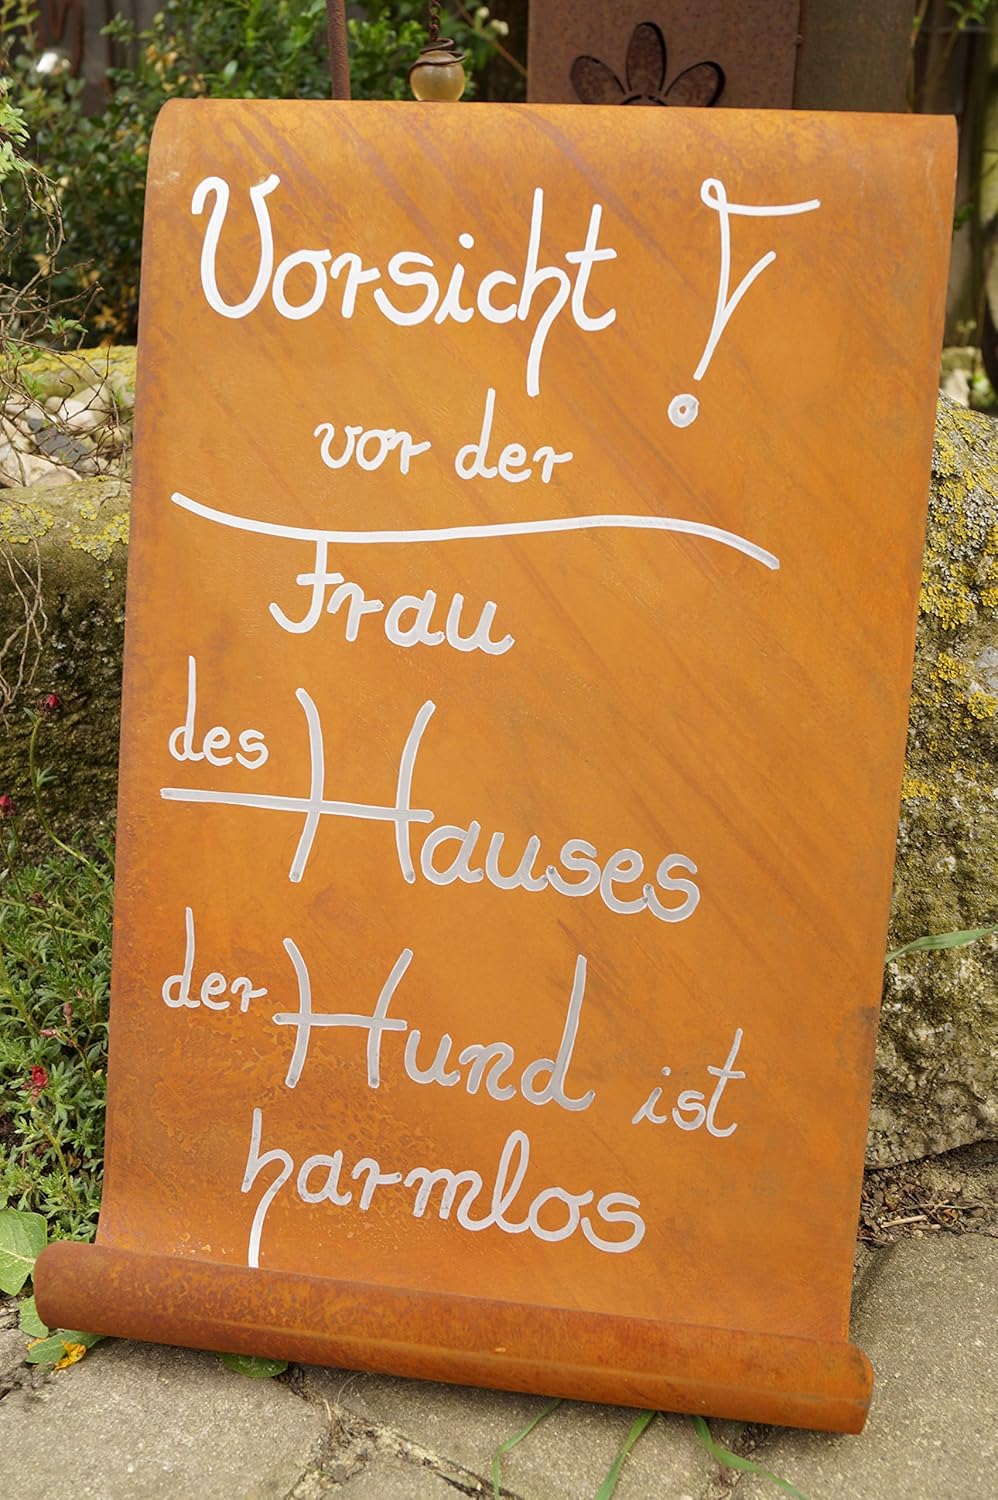 Vorsicht !
vor der
Frau
des Hauses
der Hund ist
harmlos